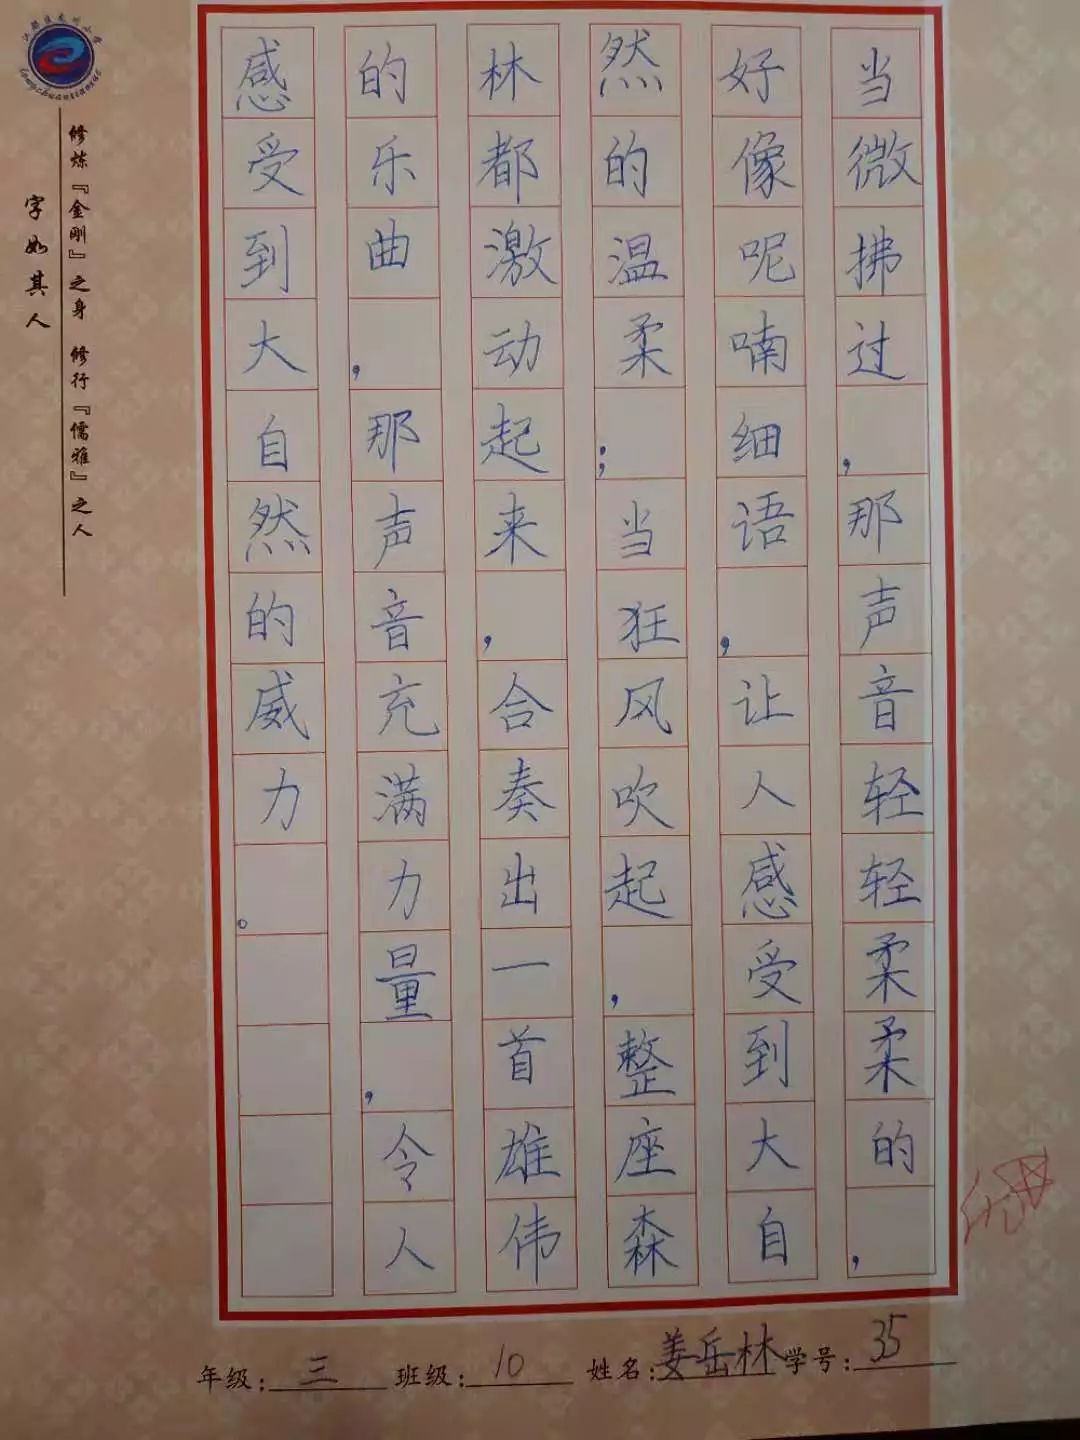 当微拂过，那声音轻轻柔柔的，
好像呢喃细语，让人感受到大自
然的温柔；当狂风吹起，整座森
林都激动起来，合奏出一首雄伟
的乐曲，那声音充满力量，令人
感受到大自然的威力。
修炼『金刚』之身 修行『儒雅』之人
字如其人
年级：三 班级：10 姓名：姜岳林 学号：35